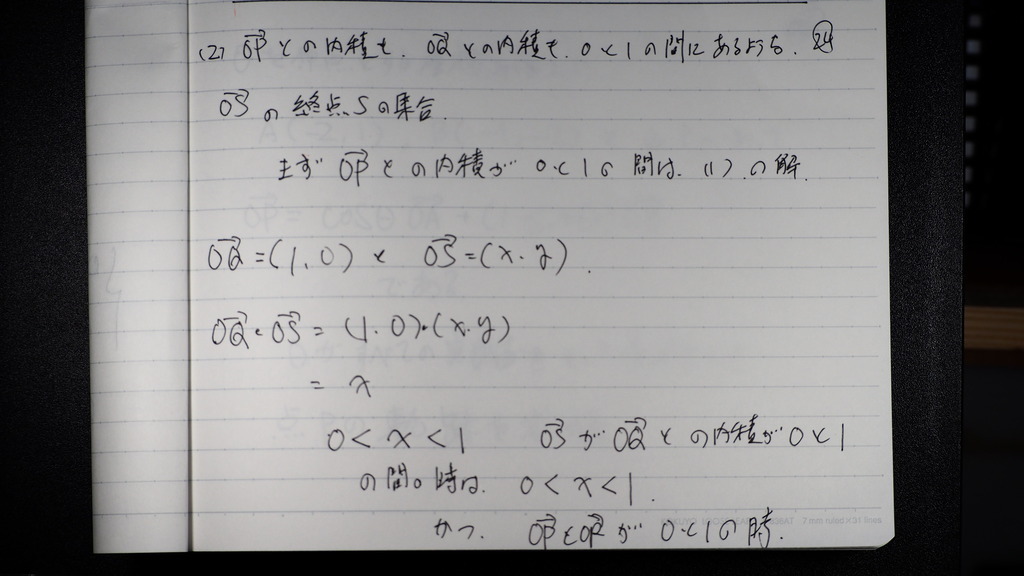 (2) OP→ との内積も、OQ→ との内積も、0と1の間にあるような、24
OS→ の終点Sの集合.
まず OP→ との内積が 0と1の間は、(1).の解.
OQ→ = (1.0) と OS→ = (x.y).
OQ→・OS→ = (1.0)・(x.y)
= x
0 < x < 1 OS→ が OQ→ との内積が 0と1
の間の時は、0 < x < 1.
かつ. OP→ と OR→ が 0と1の時.
7 mm ruled×31 lines